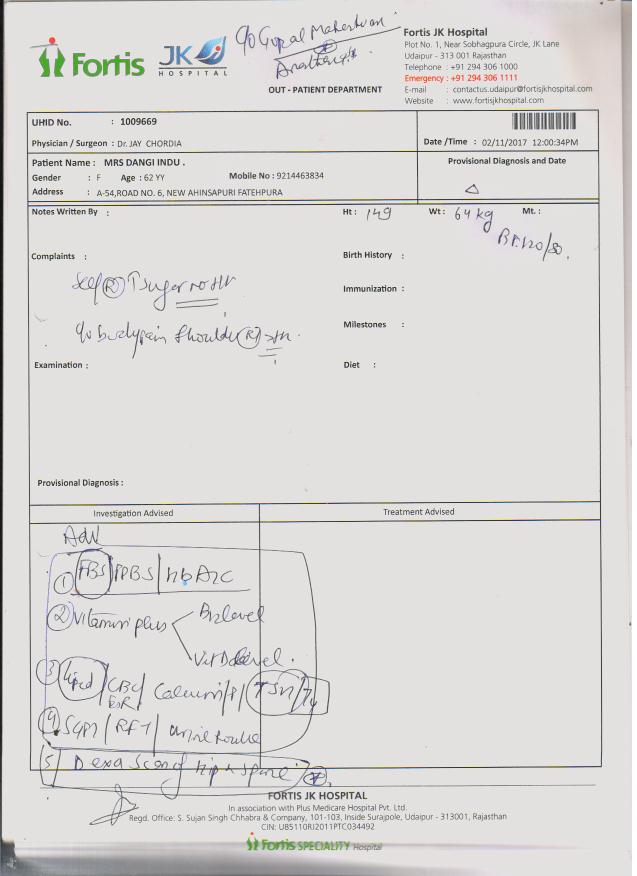 Fortis
JK
HOSPITAL
c/o Gopal Maheshwari
OUT - PATIENT DEPARTMENT
Fortis JK Hospital
Plot No. 1, Near Sobhagpura Circle, JK Lane
Udaipur - 313 001 Rajasthan
Telephone : +91 294 306 1000
Emergency : +91 294 306 1111
E-mail : contactus.udaipur@fortisjkhospital.com
Website : www.fortisjkhospital.com
UHID No. : 1009669
Physician / Surgeon : Dr.JAY CHORDIA
Date /Time : 02/11/2017 12:00:34PM
Patient Name : MRS DANGI INDU .
Gender : F Age : 62 YY Mobile No : 9214463834
Address : A-54,ROAD NO. 6, NEW AHINSAPURI FATEHPURA
Provisional Diagnosis and Date
Notes Written By :
Ht : 149 Wt : 64 kg Mt. :
BP. 120/80.
Complaints :
Birth History :
sugar
Immunization :
Milestones :
c/o bodypain shoulder (R)
Examination :
Diet :
Provisional Diagnosis :
Investigation Advised
Treatment Advised
Adv
1 FBS/PPBS/HbA1C
2 Vitamin plus B12 level
Vit D level.
3 Lipid/CBC/ESR Calcium/P/TSH/T4
4 SGPT/RFT/Urine Routine
5 Dexa Scan of hip & spine
FORTIS JK HOSPITAL
In association with Plus Medicare Hospital Pvt. Ltd.
Regd. Office: S. Sujan Singh Chhabra & Company, 101-103, Inside Surajpole, Udaipur - 313001, Rajasthan
CIN: U85110RJ2011PTC034492
Fortis SPECIALITY Hospital